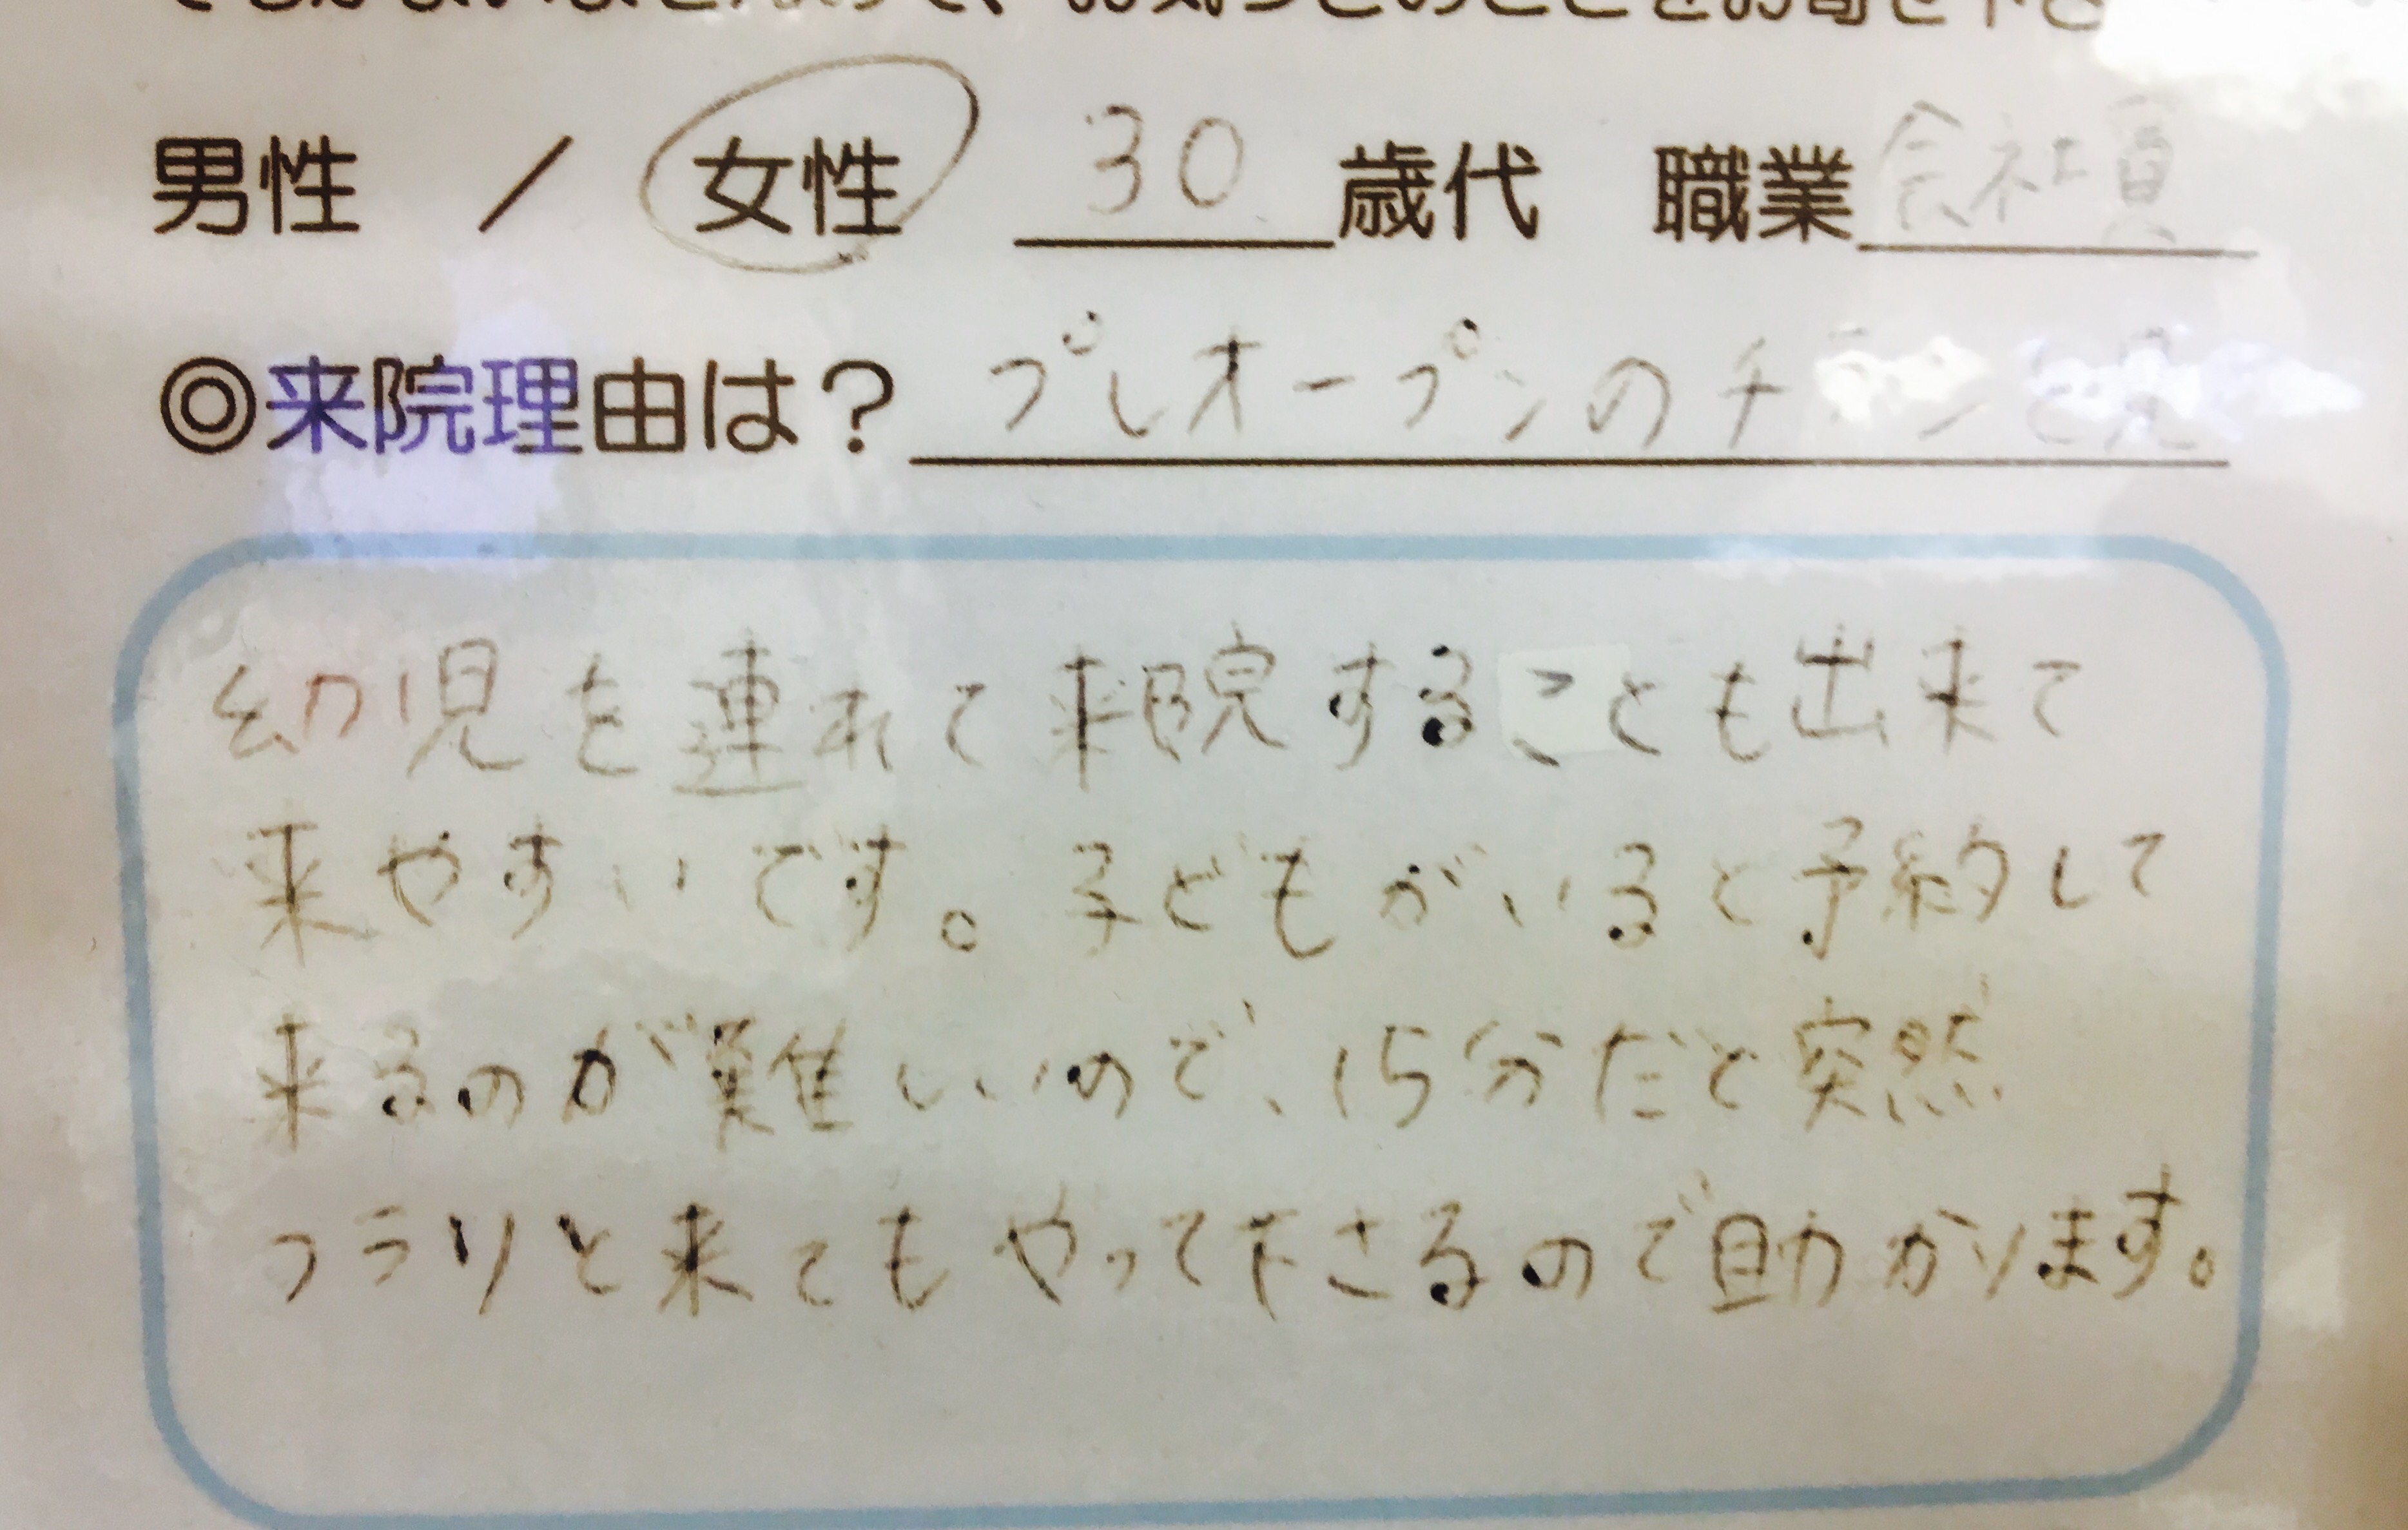 男性 ／ 女性 30 歳代 職業 会社員
◎来院理由は？ プレオープンのチラシを見
幼児を連れて来院することも出来て
来やすいです。子どもがいると予約して
来るのが難しいので、15分だと突然
フラリと来てもやって下さるので助かります。